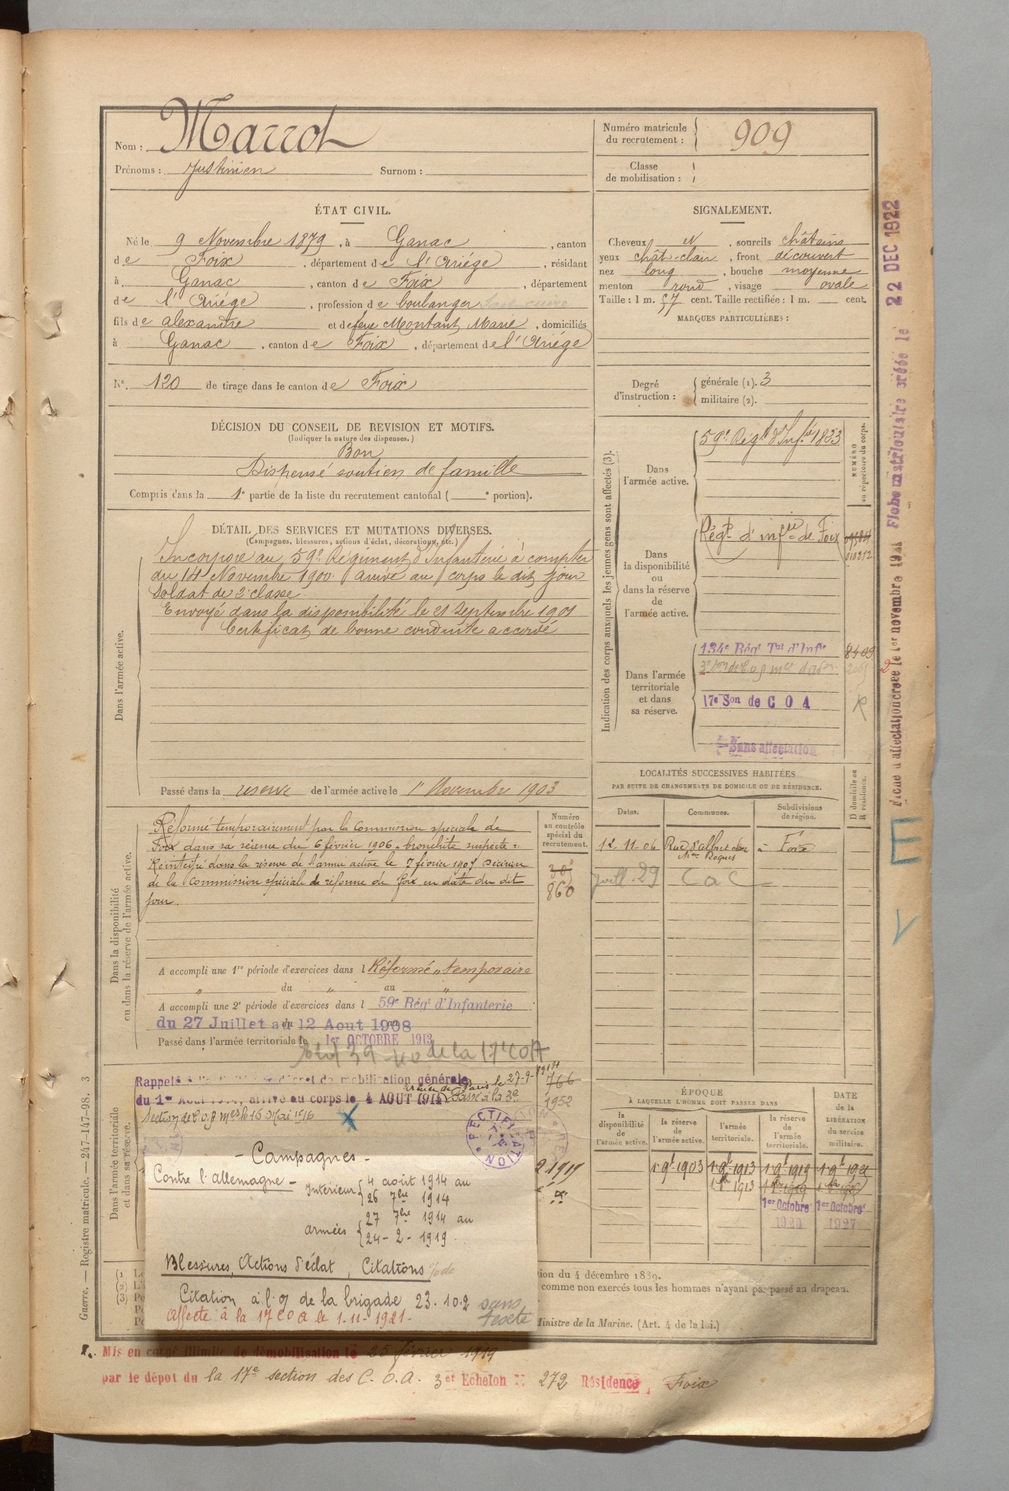 Nom : Marrot
Prénoms : Justinien Surnom :
Numéro matricule du recrutement : 909
Classe de mobilisation :
ÉTAT CIVIL.
Né le 9 Novembre 1879, à Ganac, canton
de Foix, département de l'Ariège, résidant
à Ganac, canton de Foix, département
de l'Ariège, profession de boulanger
fils de alexandre et de feue Montant Marie, domiciliés
à Ganac, canton de Foix, département de l'Ariège
N° 120 de tirage dans le canton de Foix
SIGNALEMENT.
Cheveux N, sourcils châtains
yeux chât-clair, front découvert
nez long, bouche moyenne
menton rond, visage ovale
Taille : 1 m. 57 cent. Taille rectifiée : 1 m. cent.
MARQUES PARTICULIÈRES :
Degré d'instruction : générale (1). 3
militaire (2).
DÉCISION DU CONSEIL DE REVISION ET MOTIFS.
(Indiquer la nature des dispenses.)
Bon
Dispensé soutien de famille
Compris dans la 1e partie de la liste du recrutement cantonal ( e portion).
DÉTAIL DES SERVICES ET MUTATIONS DIVERSES.
(Campagnes, blessures, actions d'éclat, décorations, etc.)
Dans l'armée active.
Incorporé au 59e Régiment d'Infanterie à compter
du 14 Novembre 1900 arrivé au corps le dit jour
Soldat de 2e classe
Envoyé dans la disponibilité le 21 Septembre 1901
Certificat de bonne conduite accordé
Passé dans la réserve de l'armée active le 1er Novembre 1903
Indication des corps auxquels les jeunes gens sont affectés (3).
NUMÉRO au répertoire du corps.
Dans l'armée active.
59e Régt d'Infie 1833
Dans la disponibilité ou dans la réserve de l'armée active.
Régt d'infie de Foix
Dans l'armée territoriale et dans sa réserve.
134e Rég Tal d'Infie
17e Son de C O A
Sans affectation
LOCALITÉS SUCCESSIVES HABITÉES
PAR SUITE DE CHANGEMENTS DE DOMICILE OU DE RÉSIDENCE.
Dates. Communes. Subdivisions de région. D domicile ou R résidence.
12.11.06 Foix
Dans la disponibilité ou dans la réserve de l'armée active.
Numéro au contrôle spécial du recrutement.
Réformé temporairement par la Commission spéciale de
Foix dans sa séance du 6 février 1906 - bronchite suspecte -
Réintégré dans la réserve de l'armée active le 7 février 1907 Décision
de la Commission spéciale de réforme de Foix en date du dit
jour
860
A accompli une 1re période d'exercices dans l Réformé temporaire
du au
A accompli une 2e période d'exercices dans l 59e Rég' d'Infanterie
du 27 Juillet au 12 Aout 1908
Passé dans l'armée territoriale le 1er OCTOBRE 1913
Dans l'armée territoriale et dans sa réserve.
mobilisation générale
arrivé au corps le 4 AOUT 1914
766
1952
RECTIFICATION
- Campagnes -
Contre l'allemagne -
Intérieur 4 août 1914 au
26 7bre 1914
armées 27 7bre 1914 au
24-2-1919
Blessures, Actions d'éclat, Citations
Citation à l'o/ de la brigade 23.10.2
sans texte
Affecté à la 17 COA le 1-11-1921.
ÉPOQUE
À LAQUELLE L'HOMME DOIT PASSER DANS
la disponibilité de l'armée active. la réserve de l'armée active. l'armée territoriale. la réserve de l'armée territoriale. DATE de la LIBÉRATION du service militaire.
1er Octobre 1er Octobre
ion du 4 décembre 1889.
comme non exercés tous les hommes n'ayant pas passé au drapeau.
inistre de la Marine. (Art. 4 de la loi.)
Mis en congé illimité de démobilisation le 25 février 1919
par le dépôt du la 17e section des C.O.A. 3et Echelon N° 272 Résidence, Foix
Guerre. — Registre matricule. — 247-147-98. 3
Fiche d'affectation créée le 1er novembre 1921 Fiche matriculaire créée le 22 DEC 1922